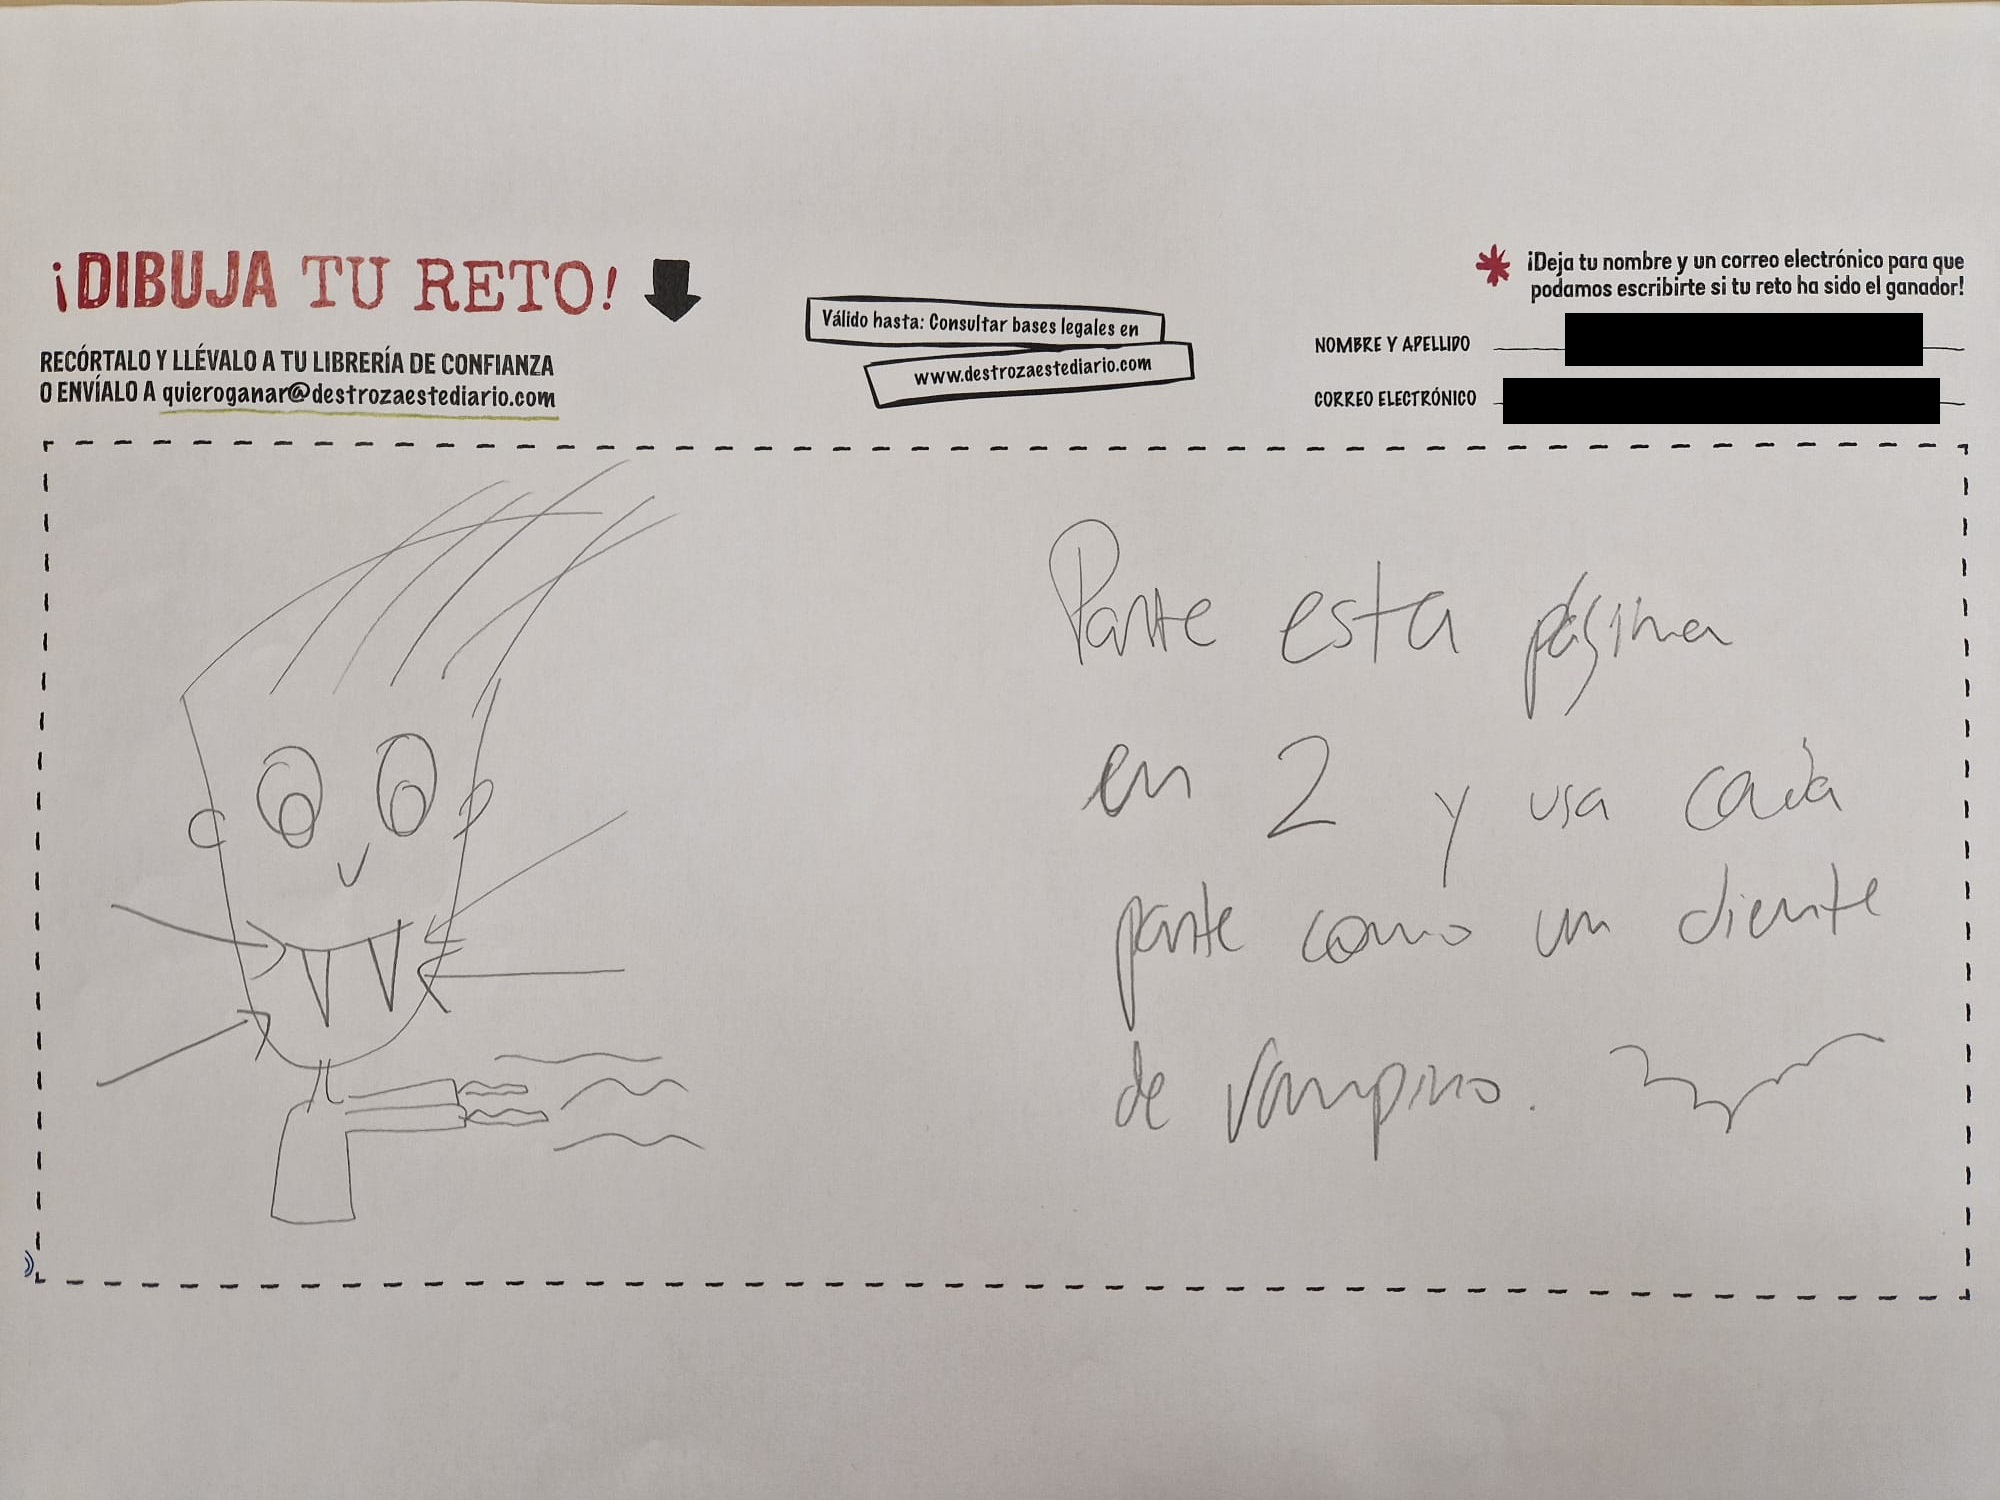 ¡DIBUJA TU RETO!
RECÓRTALO Y LLÉVALO A TU LIBRERÍA DE CONFIANZA
O ENVÍALO A quieroganar@destrozaestediario.com
Válido hasta: Consultar bases legales en
www.destrozaestediario.com
¡Deja tu nombre y un correo electrónico para que
podamos escribirte si tu reto ha sido el ganador!
NOMBRE Y APELLIDO
CORREO ELECTRÓNICO
Parte esta página
en 2 y usa cada
parte como un diente
de vampiro.